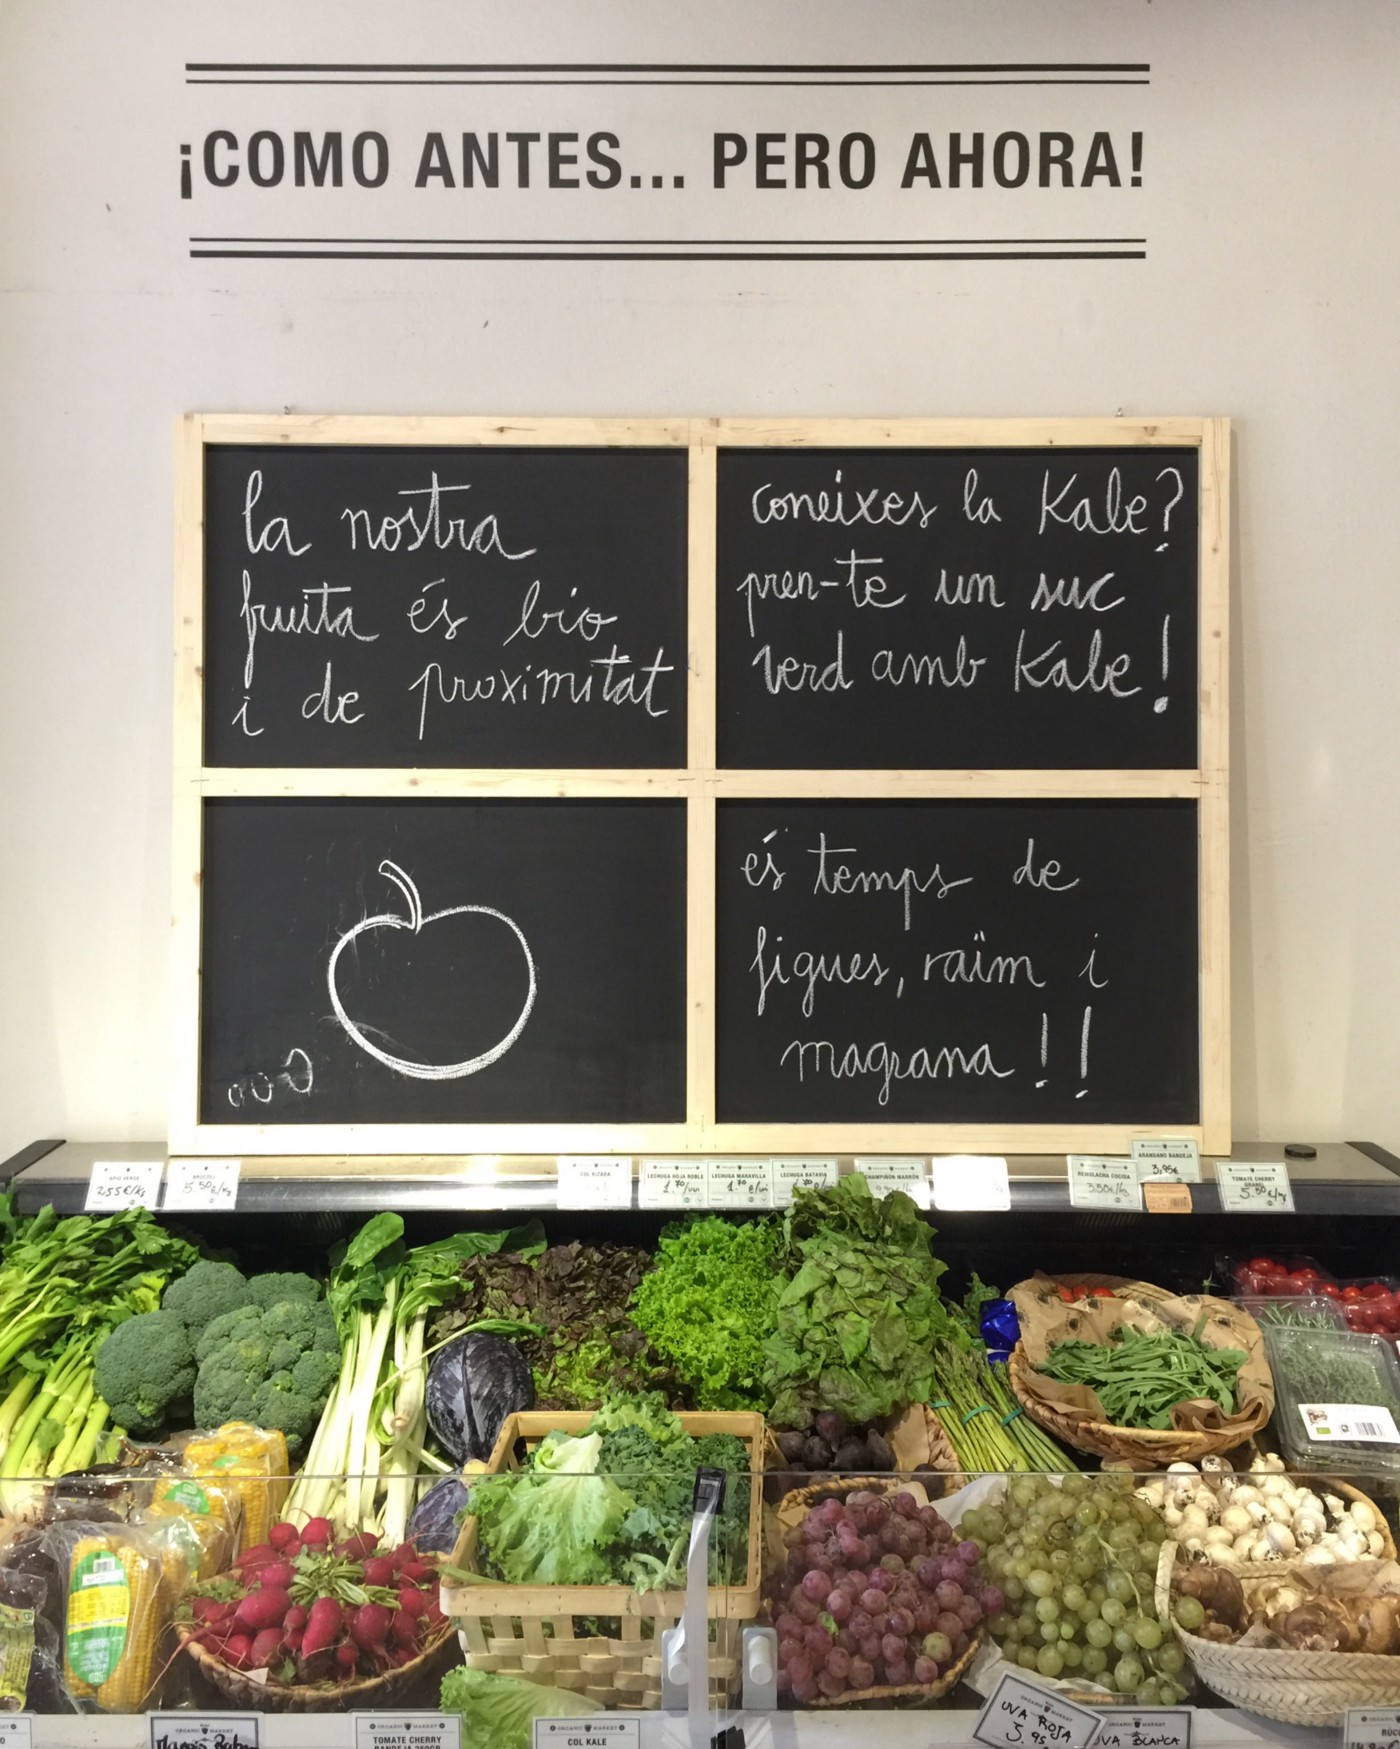 ¡COMO ANTES... PERO AHORA!
la nostra
fruita és bio
i de proximitat
coneixes la Kale?
pren-te un suc
verd amb Kale!
és temps de
figues, raïm i
magrana!!
ARANDANO BANDEJA
3,95€
APIO VERDE
2,55€/Kg
BROCOLI
5.50€/Kg
COL RIZADA
LECHUGA HOJA ROBLE
1.70/uni
LECHUGA MARAVILLA
1.70 €/uni
LECHUGA BATAVIA
CHAMPIÑON MARRÓN
REMOLACHA COCIDA
3.50€/kg
TOMATE CHERRY
GRANEL
5.50€/kg
ORGANIC MARKET
ORGANIC MARKET
TOMATE CHERRY
BANDEJA 250GR
ORGANIC MARKET
COL KALE
ORGANIC MARKET
UVA ROJA
3.95
ORGANIC MARKET
UVA BLANCA